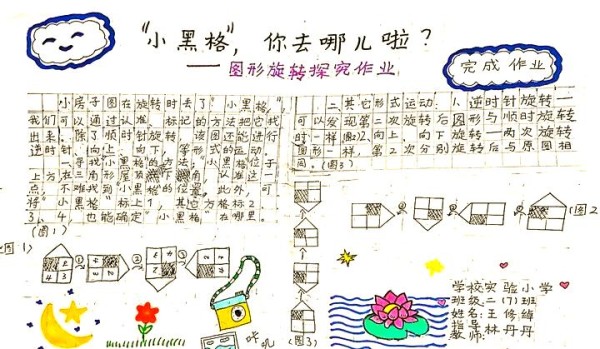 “小黑格”，你去哪儿啦？
——图形旋转探究作业
完成作业
小房子图在旋转时丢了“小黑格”
我们可以通过认准标记的方法把它找
出来。除了顺时针旋转，该图还能进行
逆时针、向上、向下等形式的运动。
一、寻找“小黑格”的方法：小黑格位于
上方在三角形屋顶的下面，认准这一
点不难找到“小黑格”的位置。此外，可
将“小黑格”标上1，其它方格标2、
3、4，也能确定“小黑格”在哪里。
（图1）
二、其它形式运动：1、逆时针旋转一
可以发现第二次旋转后图形与顺时针旋转
时一样（图2）2、向上、向下旋转一两次旋转
图形一样，第2次分别旋转后与原图相
同。（图3）
图1）
①
②
③
4 3
（图2
（图3）
咔叽
学校：实验小学
班级：二（7）班
姓名：王修
指导
教师：林丹丹